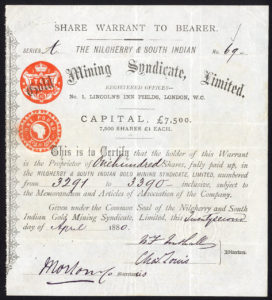 SHARE WARRANT TO BEARER.
SERIES A THE NILGHERRY & SOUTH INDIAN No. 69
Gold Mining Syndicate, Limited.
REGISTERED OFFICES—
No. 1, LINCOLN'S INN FIELDS, LONDON, W.C.
CAPITAL, £7,500.
7,500 SHARES £1 EACH.
This is to Certify that the holder of this Warrant
is the Proprietor of One hundred Shares, fully paid up, in
the NILGHERRY & SOUTH INDIAN GOLD MINING SYNDICATE, LIMITED, numbered
from 3291 to 3390 inclusive, subject to
the Memorandum and Articles of Association of the Company.
Given under the Common Seal of the Nilgherry and South
Indian Gold Mining Syndicate, Limited, this Twenty second
day of April 1880.
Directors.
Chas. Louis
Morton & Co. Secretaries